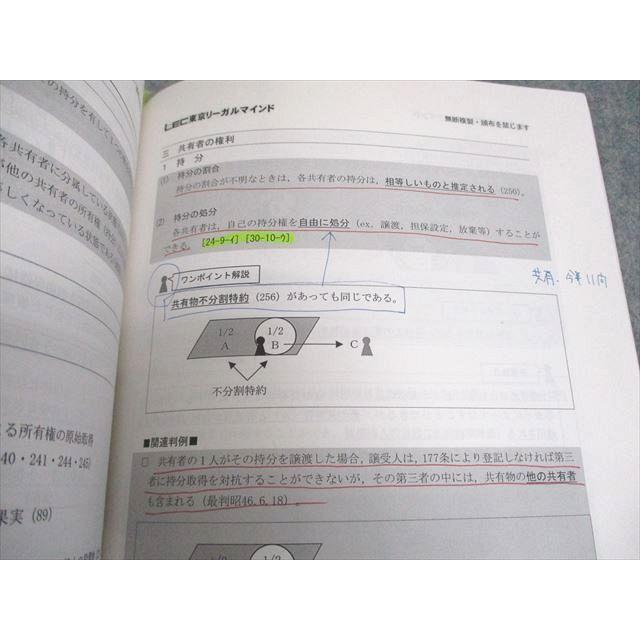 の持分を有して
各共有者に分属している
他の共有者の所有権
しくなっている状態で
る所有権の原始取得
40・241・244・245)
果実 (89)
LEC東京リーガルマインド
無断複製・頒布を禁じます
三 共有者の権利
1 持 分
(1) 持分の割合
持分の割合が不明なときは，各共有者の持分は，相等しいものと推定される (250)。
(2) 持分の処分
各共有者は，自己の持分権を自由に処分 (ex. 譲渡，担保設定，放棄等) することが
できる。 [24-9-ｲ] [30-10-ｳ]
ワンポイント解説
共有物不分割特約 (256) があっても同じである。
1/2 1/2
A B C
不分割特約
■関連判例■
□ 共有者の1人がその持分を譲渡した場合，譲受人は，177条により登記しなければ第三
者に持分取得を対抗することができないが，その第三者の中には，共有物の他の共有者
も含まれる (最判昭46.6.18)。
1/2 1/2